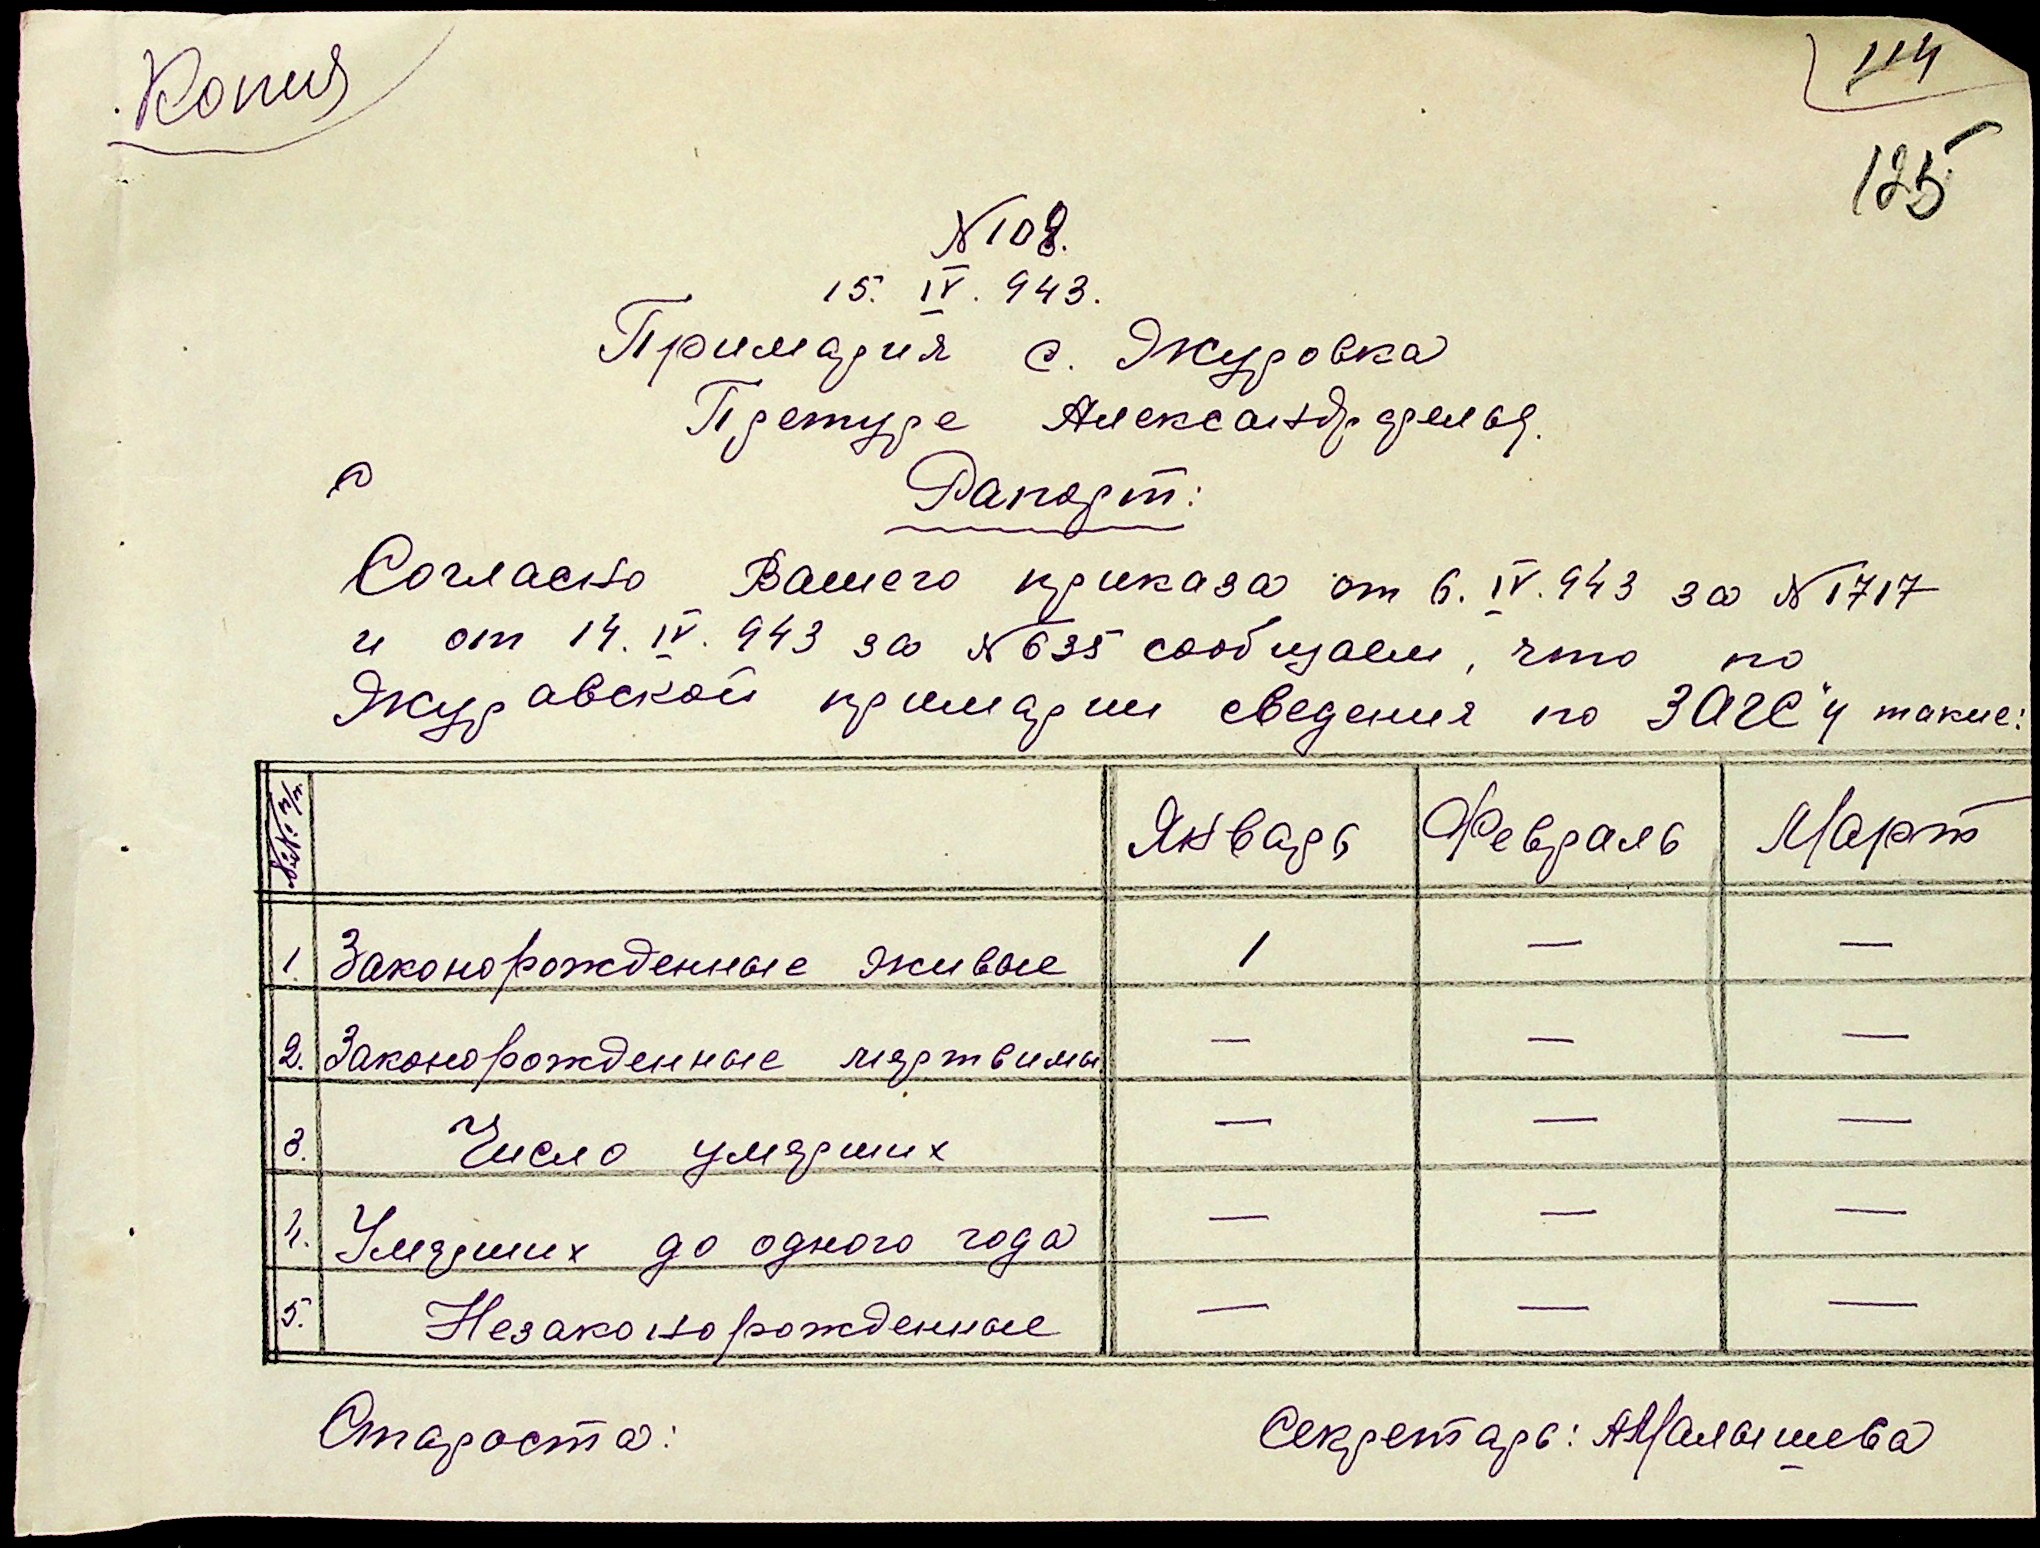 Копия
114
125
№ 108.
15. IV. 943.
Примария с. Журовка
Претуре Александрдельд.
Рапорт:
Согласно Вашего приказа от 6. IV. 943 за № 1717
и от 14. IV. 943 за № 635 сообщаем, что по
Журавской примарии сведения по ЗАГС"у такие:
№№ п/п. Январь Февраль Март
1. Законорожденные живые 1 — —
2. Законорожденные мертвимы — — —
3. Число умерших — — —
4. Умерших до одного года — — —
5. Незаконорожденные — — —
Староста: Секретарь: АМалышева